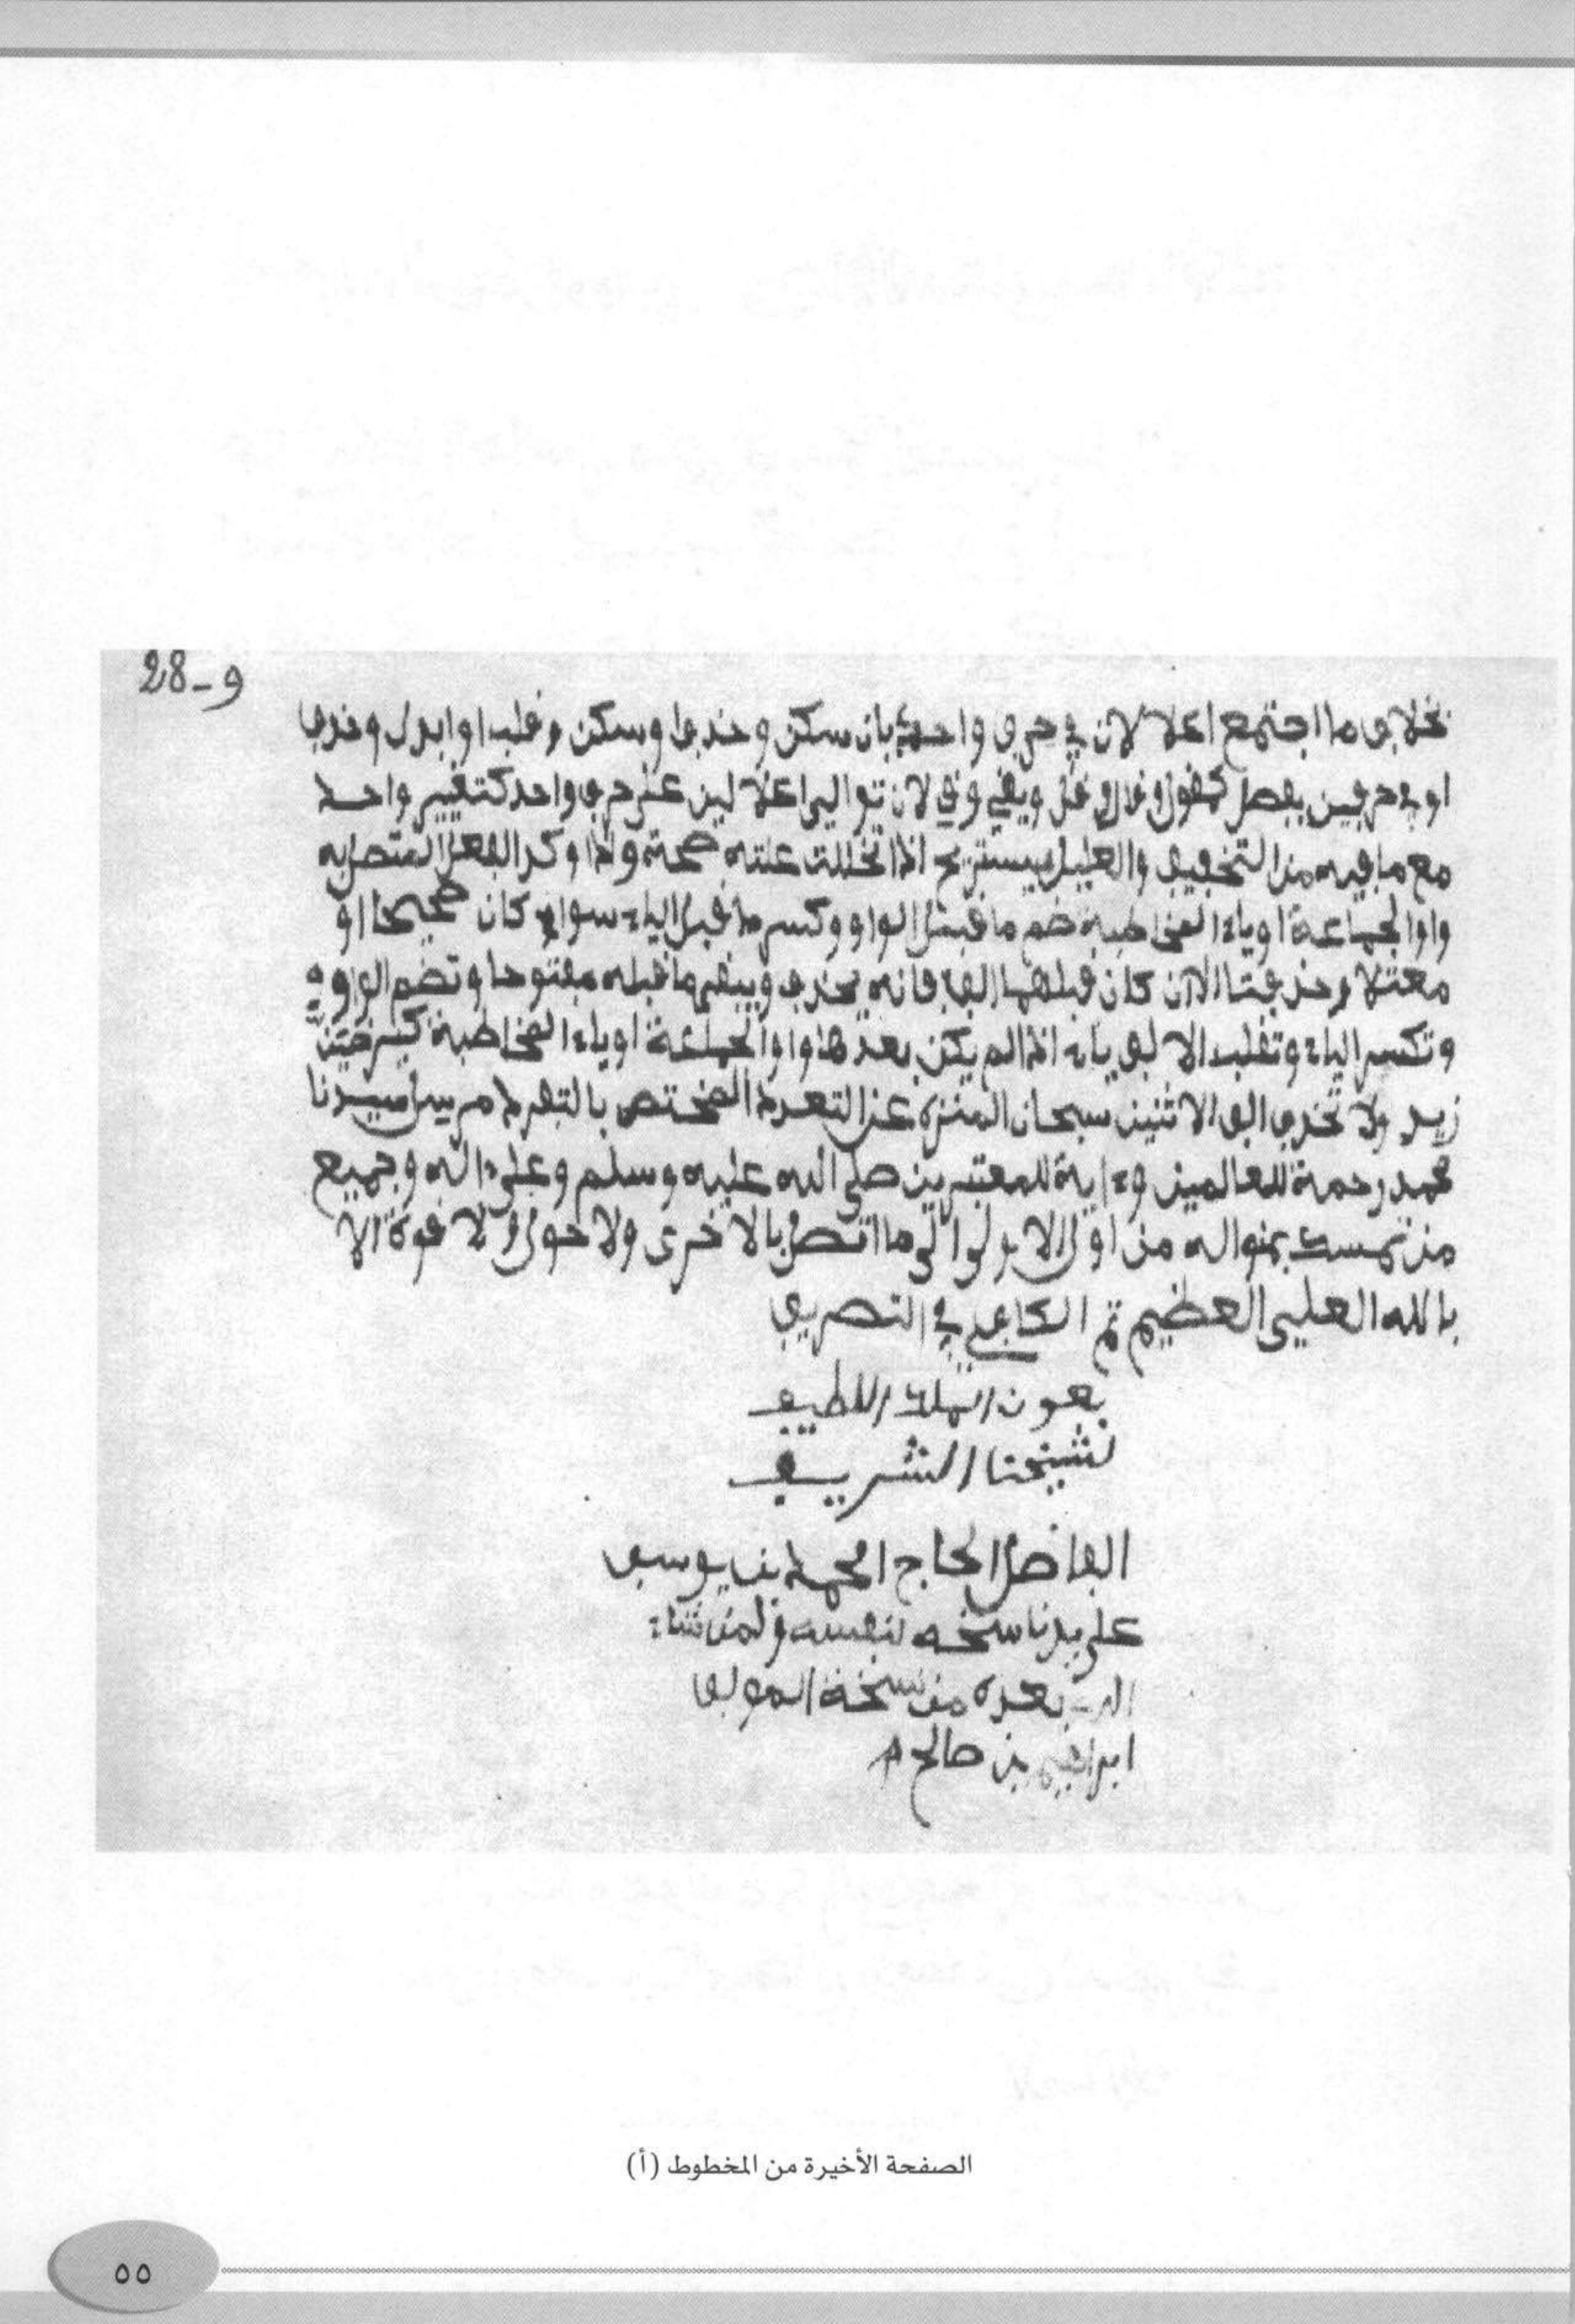 و-28
بخلاف ما اجتمع اعلالان في حرف واحد بان سكن وحذف او سكن وقلب او ابدل وحذف
او في حرفين بفصل كيقول وقال وقل ويفي وفي لان توالي اعلالين على حرف واحد كتغيير واحد
مع ما فيه من التخفيف والعليل يستريح اذا تخللت علته صحة واذا وكد الفعل المتصل به
واو الجماعة او ياء المخاطبة ضم ما قبل الواو وكسر ما قبل الياء سواء كان صحيحا او
معتلا وحذفتا الا ان كان قبلهما الف فانه يحذف ويبقى ما قبله مفتوحا وتضم الواو
وتكسر الياء وتقلب الالف ياء اذا لم يكن بعدها واو الجماعة او ياء المخاطبة
زيد ولا تحذف الف الاثنين سبحان المنزه عن التعدد المختص بالتفرد مرسل سيدنا
محمد رحمة للعالمين وءاية للمعتبرين صلى الله عليه وسلم وعلى ءاله وجميع
من تمسك بمنواله من اول الاولى الى ما اتصل بالاخرى ولا حول ولا قوة الا
بالله العلي العظيم تم الكافي في التصريف
بعون الملك اللطيف
لشيخنا الشريف
الفاضل الحاج امحمد بن يوسف
على يد ناسخه لنفسه ولمن شاء
الله بعده من نسخة المؤلف
ابراهيم بن صالح
الصفحة الأخيرة من المخطوط (أ)
٥٥